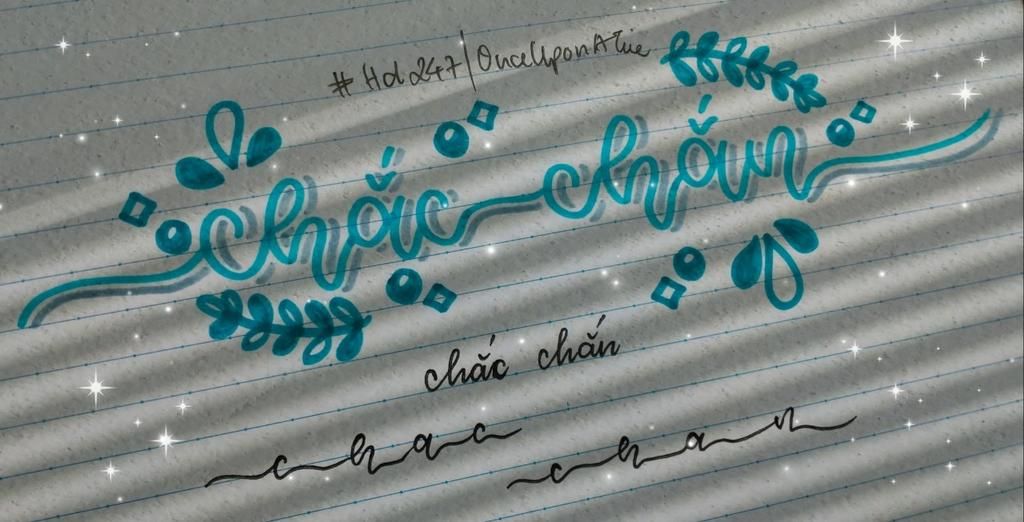 #Hd247|OnceUponATime
chắc chắn
chắc chắn
chac chan